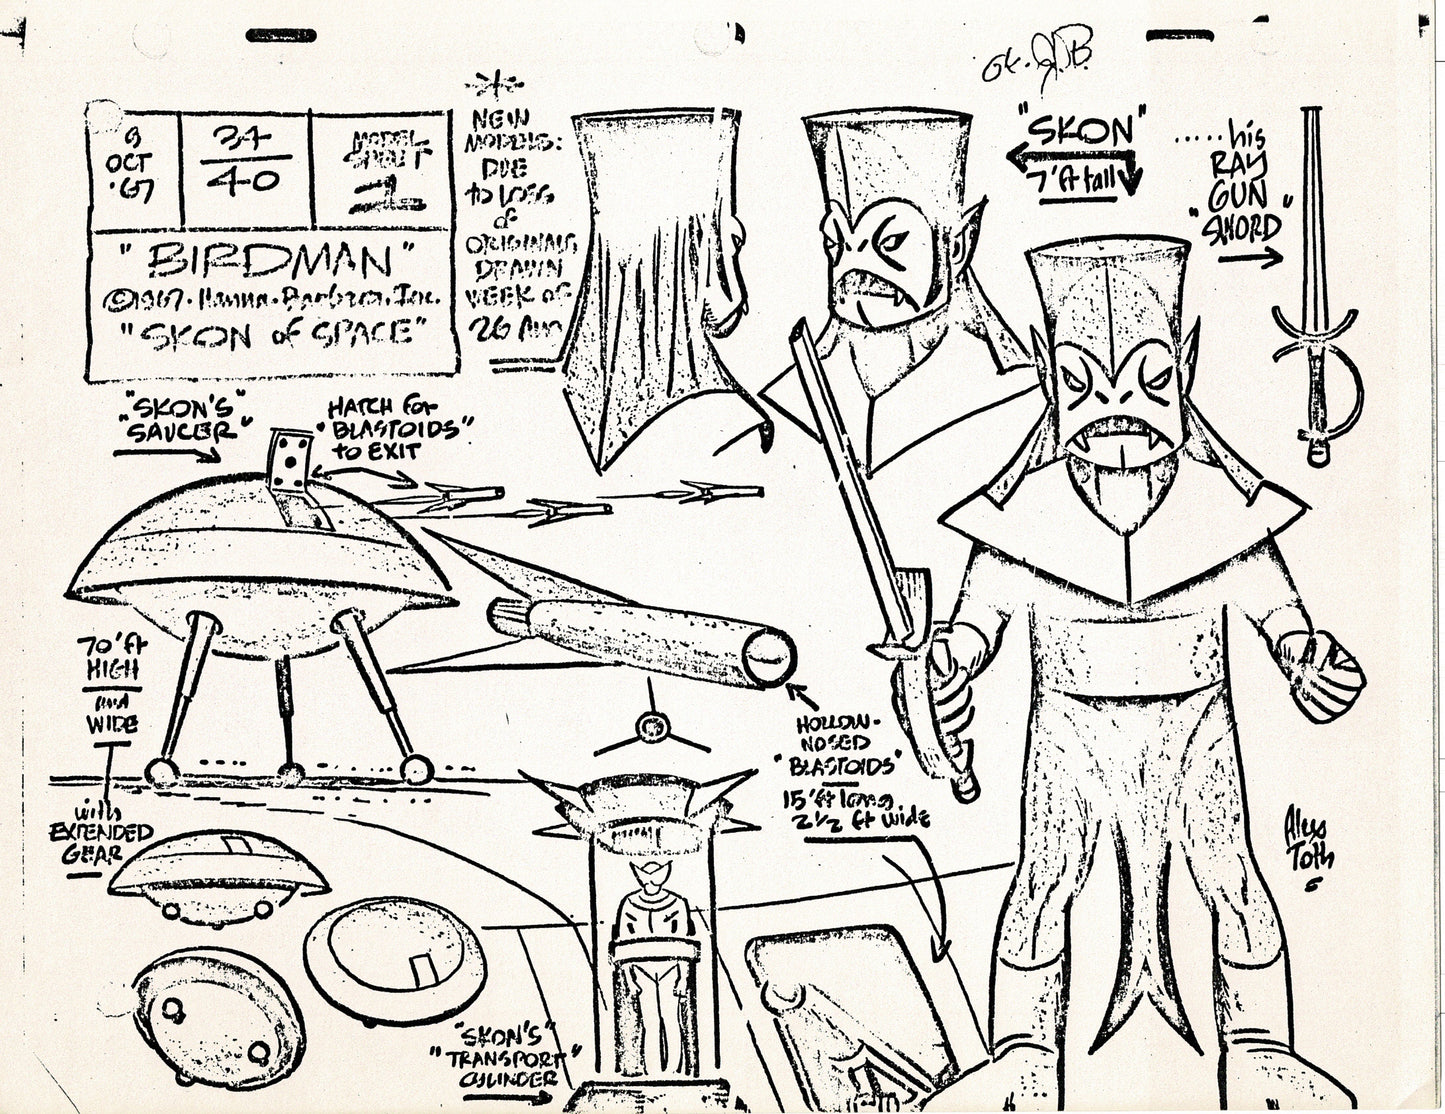 OK. J.B.
9
OCT
'67
34
40
MODEL
SHEET
1
"BIRDMAN"
©1967. Hanna-Barbera, Inc.
"SKON of SPACE"
NEW
MODELS:
DUE
to LOSS
of
ORIGINALS
DRAWN
WEEK OF
26 AUG
"SKON"
7'ft tall
.....his
RAY
GUN
"SWORD"
"SKON'S"
"SAUCER"
HATCH for
"BLASTOIDS"
to EXIT
70'ft
HIGH
and
WIDE
with
EXTENDED
GEAR
HOLLOW-
NOSED
"BLASTOIDS"
15'ft long
2 1/2 ft wide
Alex
Toth
"SKON'S"
"TRANSPORT"
CYLINDER